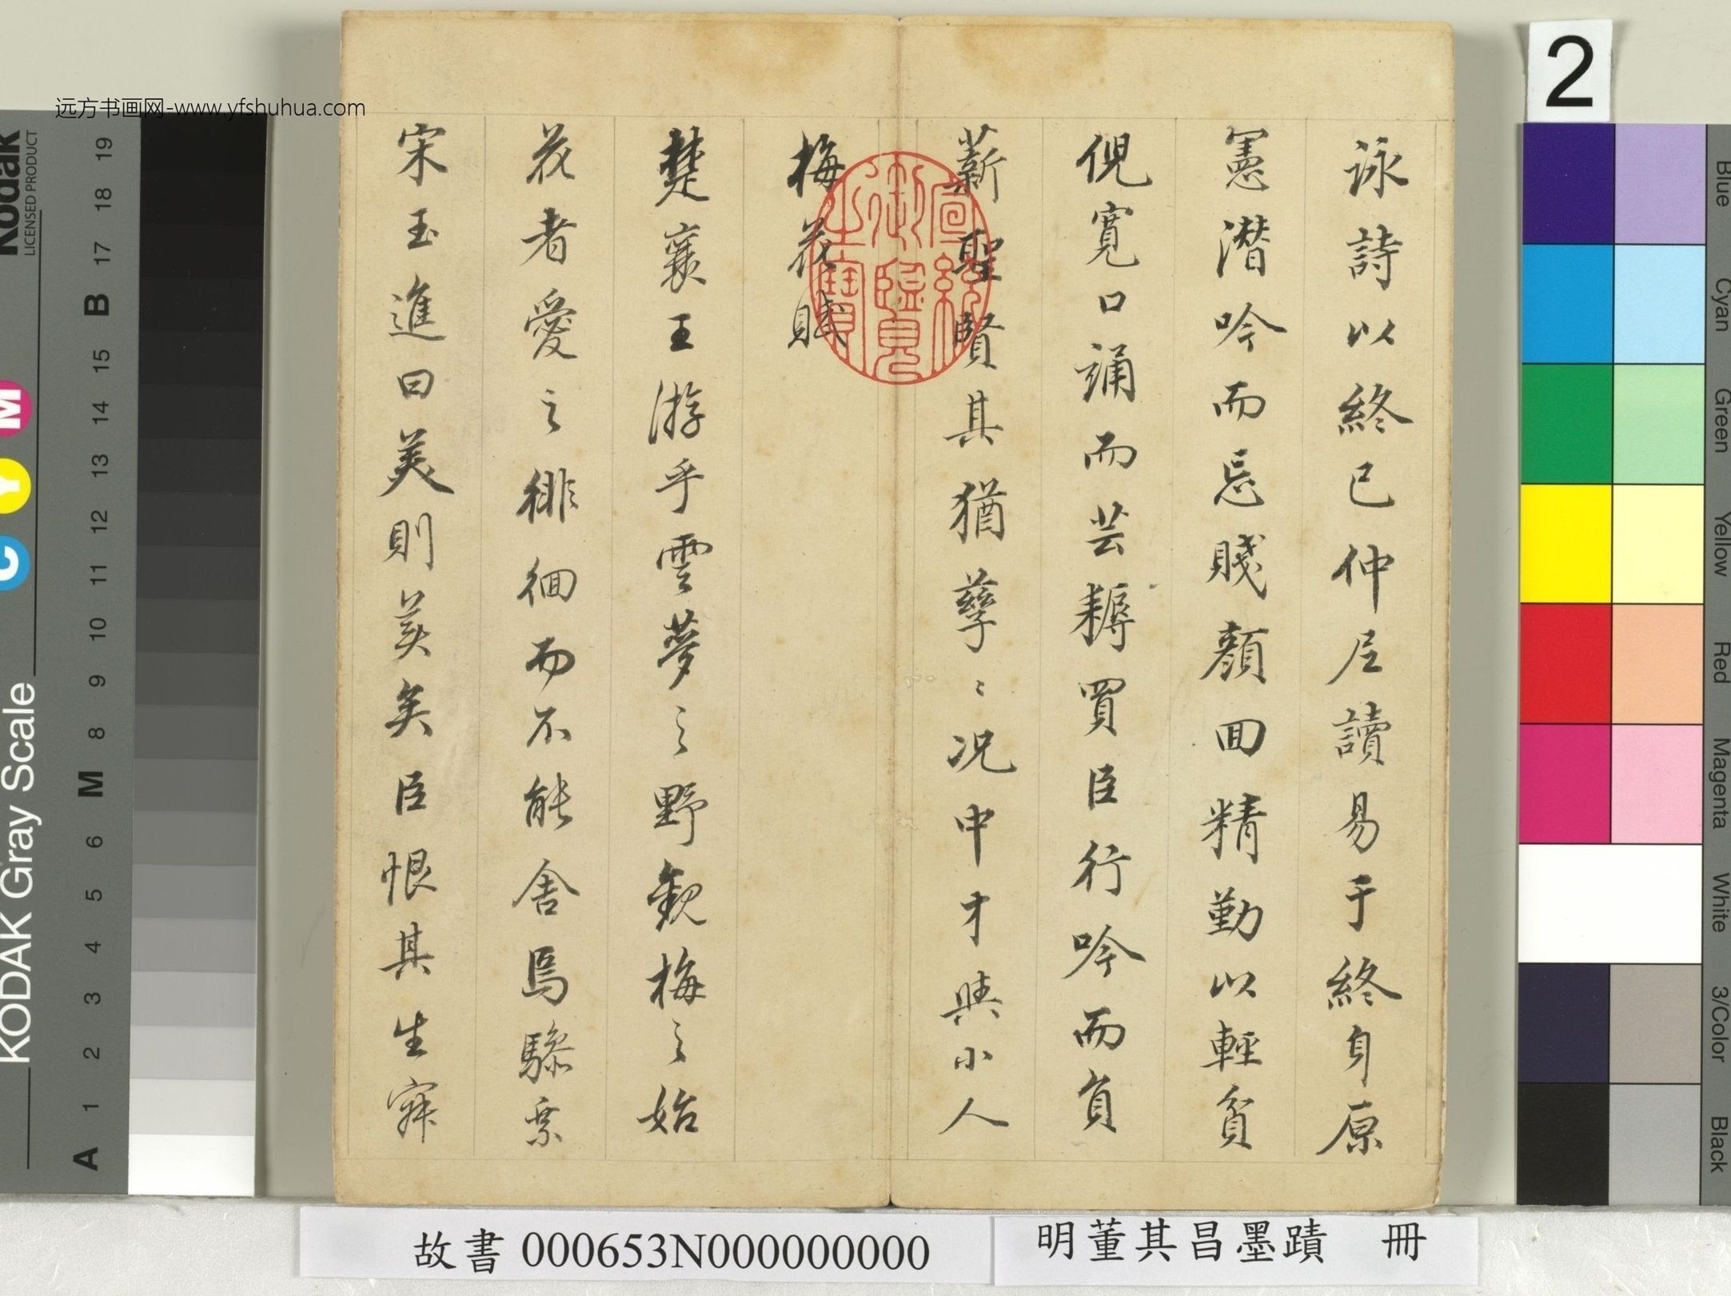 詠詩以終已仲尼讀易于終身原
憲潛吟而忘賤顏回精勤以輕貧
倪寬口誦而芸耨買臣行吟而負
薪聖賢其猶孳〻況中才與小人
梅花賦
楚襄王游乎雲夢之野觀梅之始
花者愛之徘徊而不能舍焉驂乘
宋玉進曰美則美矣臣恨其生寂
宣統御覽之寶
远方书画网-www.yfshuhua.com
故書 000653N000000000
明董其昌墨蹟 冊
2
Kodak
LICENSED PRODUCT
KODAK Gray Scale
C Y M
A 1 2 3 4 5 6 M 8 9 10 11 12 13 14 15 B 17 18 19
Blue
Cyan
Green
Yellow
Red
Magenta
White
3/Color
Black